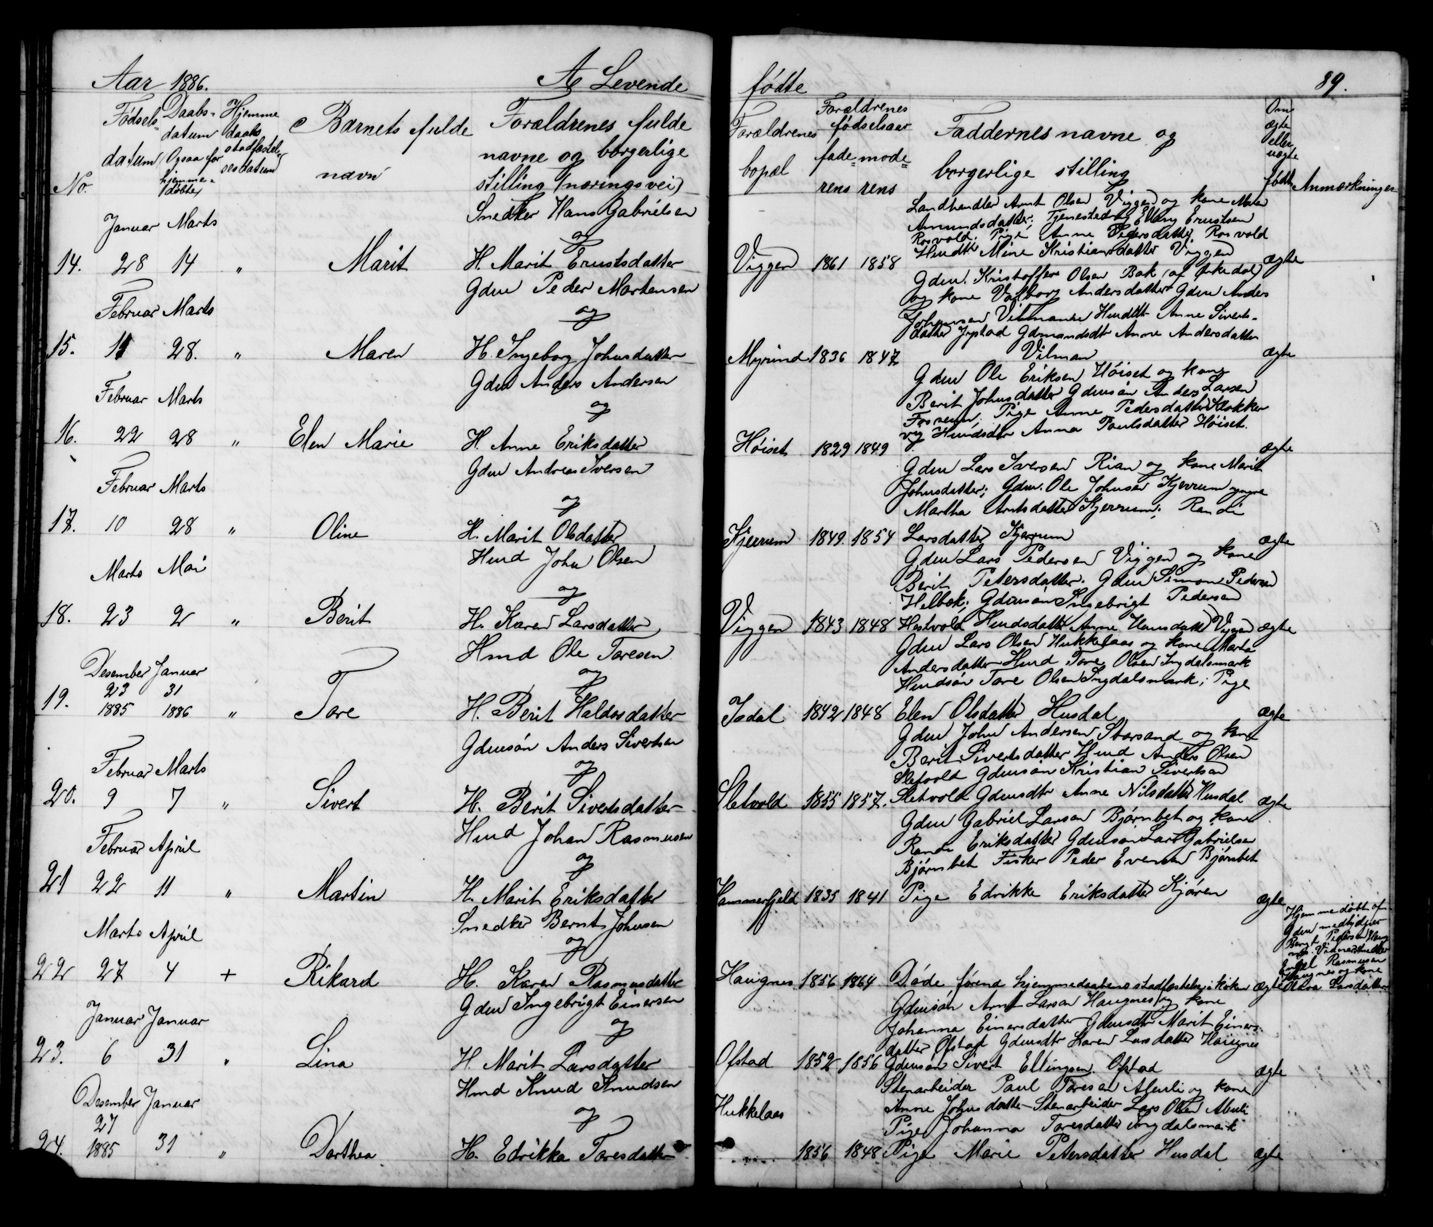 Aar 1886.
A Levende
No.
Fødsels-
datum
Daabs-
datum
Ogsaa for
hjemme-
døbte
Hjemme
daabs
stadfæstel-
sesdatum
Barnets fulde
navn
Forældrenes fulde
navne og borgerlige
stilling (næringsvei)
Januar Marts
Snedker Hans Gabrielsen
og
14. 28 14 " Marit H. Marit Ernstsdatter
Februar Marts
Gdm Peder Martensen
og
15. 11 28. " Maren H. Ingeborg Johnsdatter
Februar Marts
Gdm Anders Andersen
og
16. 22 28 " Elen Marie H. Anne Eriksdatter
Februar Marts
Gdm Andreas Iversen
og
17. 10 28 " Oline H. Marit Olsdatter
Marts Mai
Hmd John Olsen
og
18. 23 2 " Berit H. Karen Larsdatter
Desember Januar
Hmd Ole Toresen
og
23 31
19. 1885 1886 " Tore H. Berit Haldosdatter
Februar Marts
Gdmsøn Anders Sivertsen
og
20. 9 7 " Sivert H. Berit Sivertsdatter
Februar April
Hmd Johan Rasmussen
og
21 22 11 " Martin H. Marit Eriksdatter
Marts April
Snedker Bernt Johnsen
og
22 27 4 + Rikard H. Karen Rasmusdatter
Januar Januar
Gdm Ingebrigt Einersen
og
23. 6 31 " Lina H. Marit Larsdatter
Desember Januar
Hmd Knud Knudsen
27
og
24. 1885 31 " Dorthea H. Edrikka Toresdatter
fødte
89.
Forældrenes
bopæl
Forældrenes
fødselsaar
fade- mode-
rens rens
Faddernes navne og
borgerlige stilling
Om
ægte
eller
uægte
født
Anmærkninger
Landhandler Arnt Olsen Viggen og kone
Amundsdatter; Ernstsen
Rosvold; Pige Anne Pedersdatter Rosvold
Hmdtr Mine Kristiansdatter Viggen
Viggen 1861 1858 ægte
Gdm. Kristoffer Olsen Bak
og kone Valborg Andersdatter Gdm Anders
Johansen Hmdtr Anne Siverts-
datter Anne Andersdatter
Vilman
Myrind 1836 1847 ægte
Gdm Ole Eriksen Høiset og kone
Berit Johnsdatter Gdmsøn Anders Larsen
Pige Anne Pedersdatter Klokker
vig Hmdsdtr Anna Paulsdatter Høiset.
Høiset 1829 1849 ægte
Gdm Lars Iversen Rian og kone Marit
Johnsdatter; Gdm. Ole Johnsen Kjerrum
Martha Arntsdatter Kjerrum; Randi
Kjerrum 1849 1854 Larsdatter Kjerrum ægte
Gdm Lars Pedersen Viggen og kone
Berit Petersdatter. Gdm Simon Pedersen
Helbæk; Gdmsøn Ingebrigt Pedersen
Viggen 1843 1848 Hestvold, Hmdsdatter Anne Viggen ægte
Gdm Lars Olsen Hukkelaas og kone Marta
Andersdatter Hmd Tore Olsen Ingdalsmark
Hmdsøn Tore Olsen Ingdalsmark; Pige
1842 1848 Elen Olsdatter Husdal ægte
Gdm John Andersen Storsand og kone
Berit Sivertsdatter Hmd Anders Olsen
Sletvold Gdmsøn Kristian Sivertsen
Sletvold 1855 1857. Sletvold Gdmsdtr Anne Nilsdatter Husdal ægte
Gdm Gabriel Larsen Bjørnbet og kone
Randi Eriksdatter Gdmsøn Lars Gabrielsen
Bjørnbet Fisker Peder Evensen Bjørnbet
1835 1841 Pige Edrikke Eriksdatter Kjøren ægte
Hjemmedøbt af
Gdm medhjelper
Bengt Pedersen
Rasmussen
Haugnes og kone
Larsdatter
Haugnes 1856 1864 Døde førend hjemmedaabens stadfæstelse i kirken ægte
Gdmsøn Arnt Larsen Haugnes og kone
Johanna Einersdatter Gdmsdtr Marit Einers-
datter Ofstad Gdmsdtr Karen Larsdatter Haugnes
Ofstad 1852 1856 Gdmsøn Sivert Ellingsen Ofstad ægte
Stenarbeider Paul Toresen og kone
Hukkelaas
Anne Johnsdatter Stenarbeider Lars Olsen
Pige Johanna Toresdatter Ingdalsmark
1856 1848 Pige Marie Petersdatter Husdal ægte